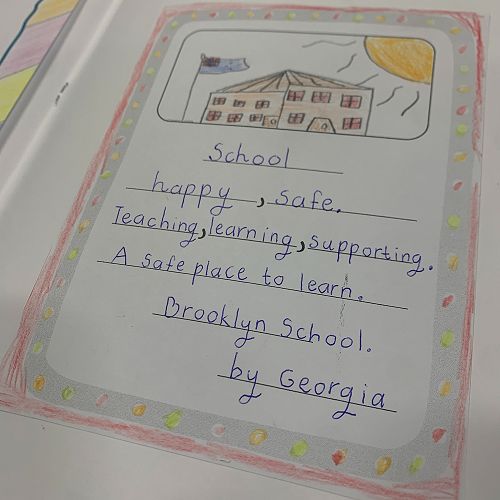 School
happy, safe.
Teaching, learning, supporting.
A safe place to learn.
Brooklyn School.
by Georgia